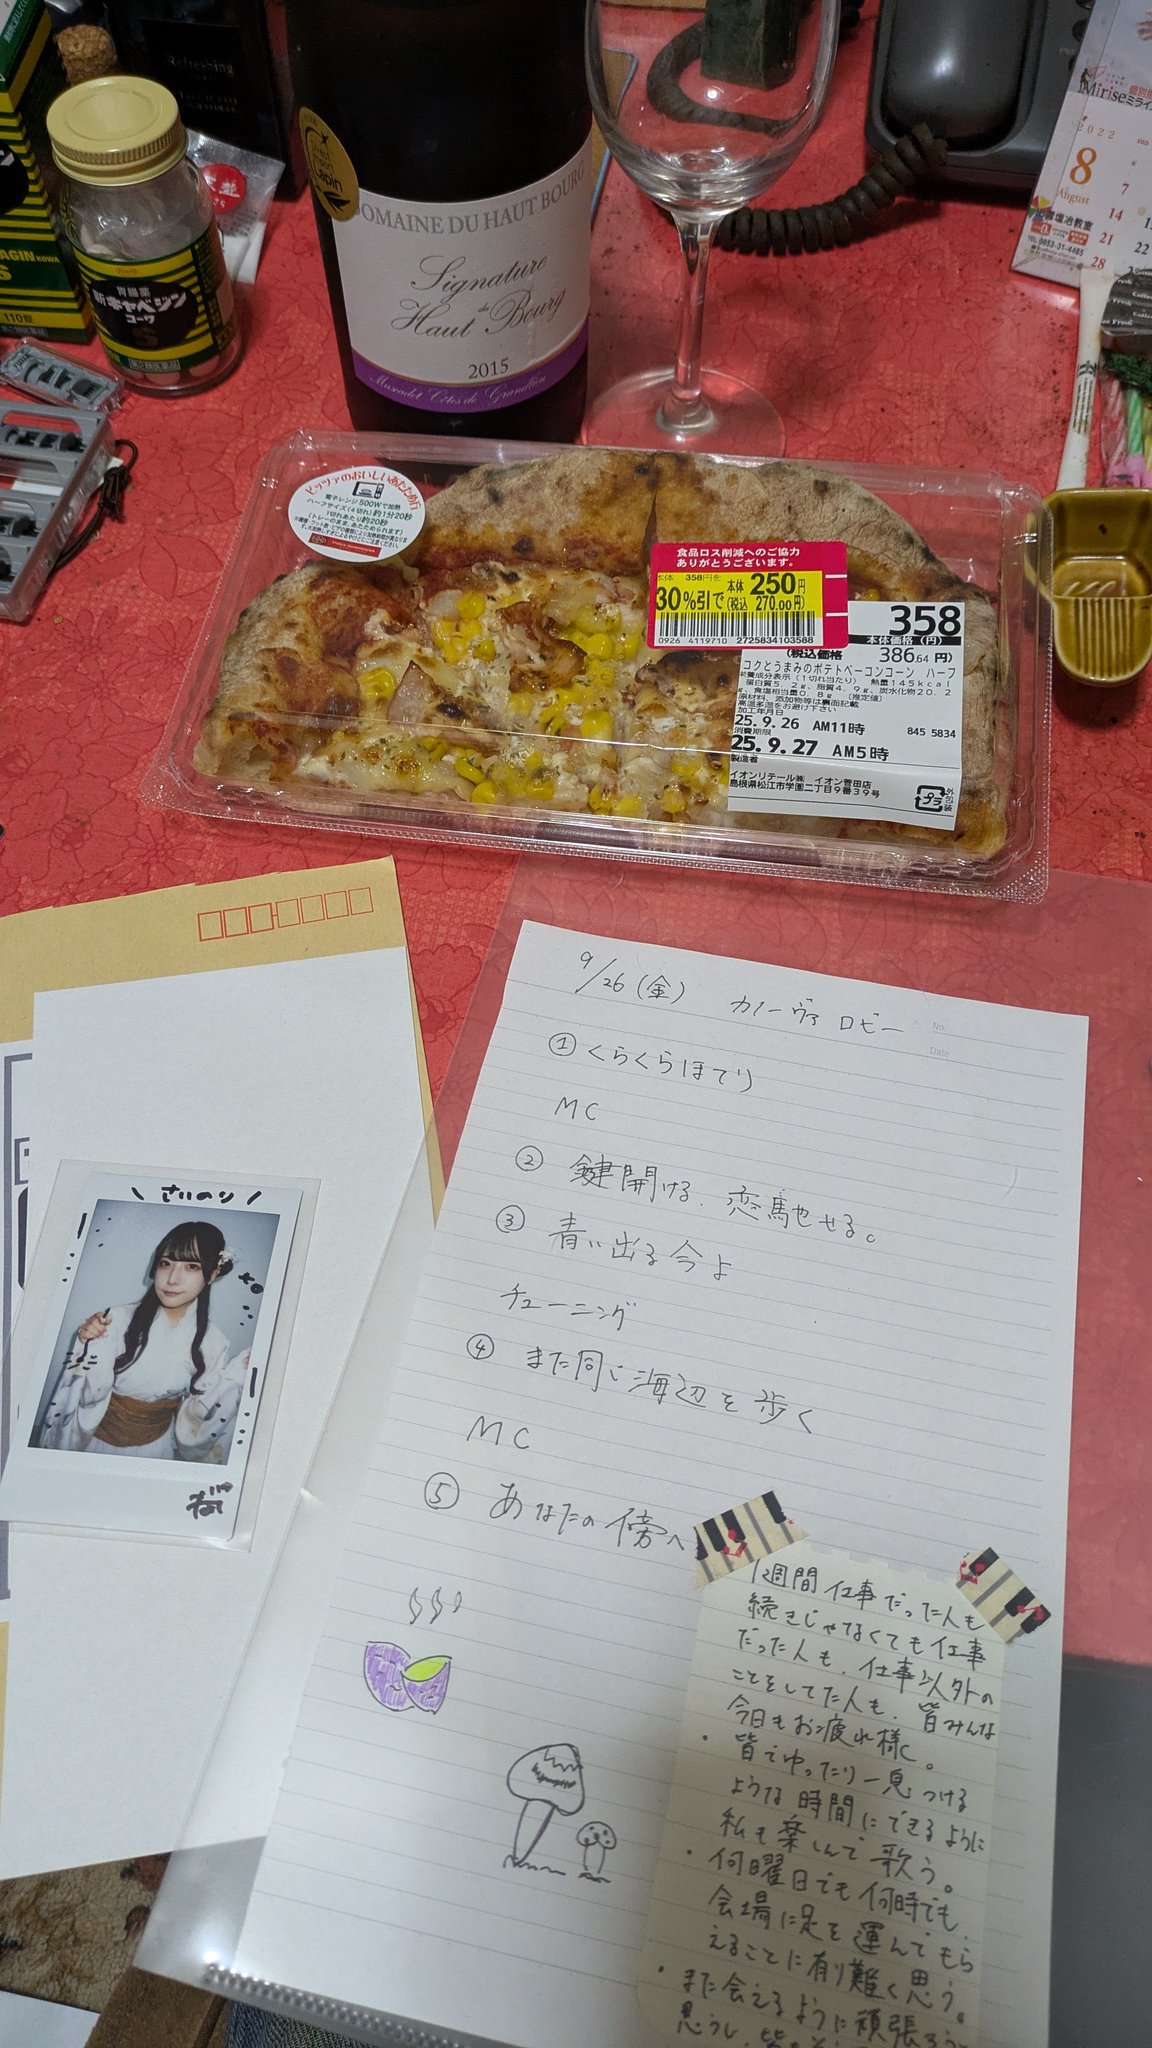 Refreshing
AGIN KOWA
S
110錠
Kowa
胃腸薬
新キャベジン
コーワ
S
第2類医薬品
Lapin
DOMAINE DU HAUT BOURG
Signature
du
Haut Bourg
2015
Muscadet Côtes de Grandlieu
Miriseミライズ
2022
8
August
7
14
21
28
塩冶教室
ピッツァのおいしいあたため方
電子レンジ500Wで加熱
ハーフサイズ(4切れ)約1分20秒
1切れあたり約20秒
(トレーのまま、あたためられます)
食品ロス削減へのご協力
ありがとうございます。
本体 358円を
30%引で 本体 250円
(税込 270.00円)
0926 4119710 2725834103588
358
本体価格(円)
(税込価格 386.64 円)
コクとうまみのポテトベーコンコーン ハーフ
栄養成分表示(1切れ当たり) 熱量145kcal
、蛋白質5.2g、脂質4.9g、炭水化物20.2
g、食塩相当量0.8g (推定値)
原材料、添加物等は裏面記載
高温多湿をお避け下さい
加工年月日
25.9.26 AM11時 845 5834
消費期限
25.9.27 AM5時
製造者
イオンリテール㈱ イオン菅田店
島根県松江市学園二丁目9番39号
プラ
外包装
9/26(金) カノーヴァ ロビー
No.
Date
①くらくらほてり
MC
② 鍵開ける、恋馳せる。
③ 青い出る今よ
チューニング
④ また同じ海辺を歩く
MC
⑤ あなたの傍へ
\ さいのり /
1週間仕事だった人も
続きじゃなくても仕事
だった人も、仕事以外の
ことをしてた人も、皆みんな
今日もお疲れ様。
・皆でゆったり一息つける
ような時間にできるように
私も楽しんで歌う。
・何曜日でも何時でも、
会場に足を運んでもら
えることに有り難く思う。
・また会えるように頑張ろう